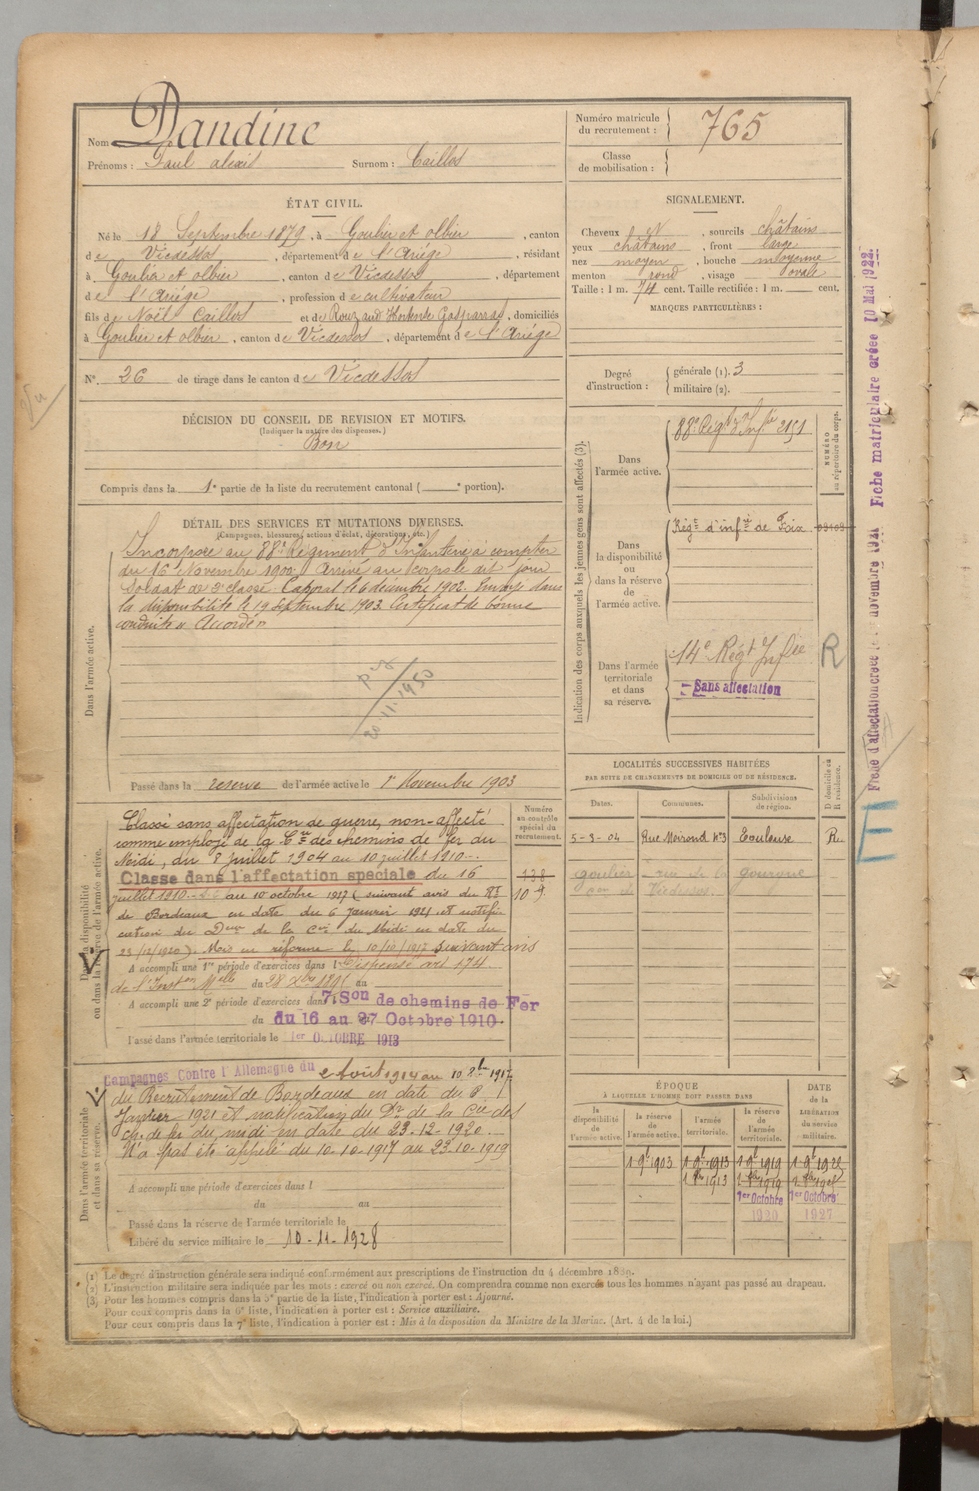 Nom Dandine
Prénoms : Paul alexis Surnom : Caillos
Numéro matricule du recrutement : 765
Classe de mobilisation :
ÉTAT CIVIL.
Né le 18 Septembre 1879, à Goulier et olbier, canton
de Vicdessos, département de l'Ariége, résidant
à Goulier et olbier, canton de Vicdessos, département
de l'Ariége, profession de cultivateur
fils de Noël Caillos et de Rouzaud Hortense Gasparras, domiciliés
à Goulier et olbier, canton de Vicdessos, département de l'Ariége
N°. 26 de tirage dans le canton de Vicdessos
DÉCISION DU CONSEIL DE REVISION ET MOTIFS.
(Indiquer la nature des dispenses.)
Bon
Compris dans la 1e partie de la liste du recrutement cantonal ( e portion).
SIGNALEMENT.
Cheveux N, sourcils châtains
yeux châtains, front large
nez moyen, bouche moyenne
menton rond, visage ovale
Taille : 1 m. 74 cent. Taille rectifiée : 1 m. cent.
MARQUES PARTICULIÈRES :
Degré d'instruction : générale (1). 3
militaire (2).
DÉTAIL DES SERVICES ET MUTATIONS DIVERSES.
(Campagnes, blessures, actions d'éclat, décorations, etc.)
Dans l'armée active.
Incorporé au 88e Régiment d'Infanterie à compter
du 16 Novembre 1900 Arrivé au corps le dit jour
Soldat de 2e classe. Caporal le 6 décembre 1902. Envoyé dans
la disponibilité le 19 Septembre 1903. Certificat de bonne
conduite « Accordé »
20-11-1950
Passé dans la reserve de l'armée active le 1er Novembre 1903
Indication des corps auxquels les jeunes gens sont affectés (3).
NUMÉRO au répertoire du corps.
Dans l'armée active. 88e Régt d'Infie 2151
Dans la disponibilité ou dans la réserve de l'armée active. Régt d'infie de Foix
Dans l'armée territoriale et dans sa réserve. 14e Régt Infie R
Sans affectation
Fiche d'affectation créée le novembre 1921 Fiche matriculaire créée 10 Mai 1922
E
Dans la disponibilité ou dans la réserve de l'armée active.
Classé sans affectation de guerre, non-affecté
comme employé de la Cie des chemins de fer du
Midi, du 8 Juillet 1904 au 10 juillet 1910.
Classé dans l'affectation spéciale du 16
juillet 1910 au 10 octobre 1917 (suivant avis du
de Bordeaux en date du 6 Janvier 1921 et notifi
cation du Deur de la Cie du Midi en date du
23/12/1920). Mis en réforme le 10/10/1917 suivant avis
A accompli une 1re période d'exercices dans l Dispensé art 174
de l'Inston Melle du 28 Xbre 1895 au
A accompli une 2e période d'exercices dans 7e Son de chemins de Fer
du 16 au 27 Octobre 1910
Passé dans l'armée territoriale le 1er OCTOBRE 1913
Numéro au contrôle spécial du recrutement.
138
109
LOCALITÉS SUCCESSIVES HABITÉES
PAR SUITE DE CHANGEMENTS DE DOMICILE OU DE RÉSIDENCE.
Dates. Communes. Subdivisions de région. D domicile ou R résidence.
5-3-04 Rue Moirond N°3 Toulouse R.
goulier
Dans l'armée territoriale et dans sa réserve.
Campagnes Contre l'Allemagne du 2 Août 1914 au 10 8bre 1917
du Recrutement de Bordeaux en date du
Janvier 1921 et notification du Dr de la Cie des
ch. de fer du midi en date du 23-12-1920.
N'a pas été appelé du 10-10-1917 au 23-10-1919
A accompli une période d'exercices dans l
du au
Passé dans la réserve de l'armée territoriale le
Libéré du service militaire le 10-11-1928
ÉPOQUE
À LAQUELLE L'HOMME DOIT PASSER DANS
la disponibilité de l'armée active. la réserve de l'armée active. l'armée territoriale. la réserve de l'armée territoriale. DATE de la LIBÉRATION du service militaire.
1 9bre 1903 1 9bre 1913 1 9bre 1919 1 9bre 1922
1er Octobre 1920 1er Octobre 1927
(1) Le degré d'instruction générale sera indiqué conformément aux prescriptions de l'instruction du 4 décembre 1889.
(2) L'instruction militaire sera indiquée par les mots : exercé ou non exercé. On comprendra comme non exercés tous les hommes n'ayant pas passé au drapeau.
(3) Pour les hommes compris dans la 5e partie de la liste, l'indication à porter est : Ajourné.
Pour ceux compris dans la 6e liste, l'indication à porter est : Service auxiliaire.
Pour ceux compris dans la 7e liste, l'indication à porter est : Mis à la disposition du Ministre de la Marine. (Art. 4 de la loi.)